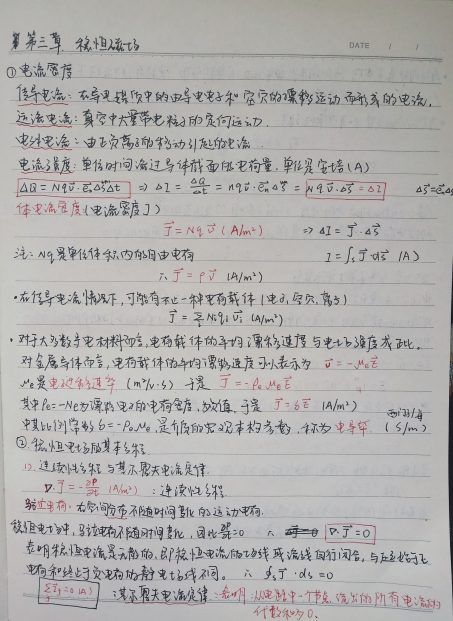 第三章 稳恒磁场
DATE / /
①电流密度
传导电流：在导电媒质中的由导电电子和空穴的漂移运动而形成的电流.
运流电流：真空中大量带电粒子的定向运动.
电解电流：由正负离子的移动引起的电流.
电流强度：单位时间流过导体截面的电荷量，单位是安培(A)
ΔQ = Nq v⃗·e⃗ₙΔSΔt ⇒ ΔI = ΔQ/Δt = Nq v⃗·e⃗ₙΔS = Nq v⃗·ΔS⃗ = ΔI ΔS⃗=e⃗ₙΔS
体电流密度(电流密度J)
J⃗ = Nq v⃗ (A/m²) ⇒ ΔI = J⃗·ΔS⃗
注：Nq是单位体积内的自由电荷 I = ∫ₛ J⃗·dS⃗ (A)
∴ J⃗ = ρv⃗ (A/m²)
·在传导电流情况下，可能有不止一种电荷载体(电子,空穴,离子)
J⃗ = Σ Nᵢqᵢv⃗ᵢ (A/m²)
·对于大多数导电材料而言,电荷载体的平均漂移速度与电场强度成正比.
对金属导体而言,电荷载体的平均漂移速度可以表示为 v⃗ = -μₑE⃗
μₑ是电子迁移率 (m²/V·s) 于是 J⃗ = -ρₑμₑE⃗
其中ρₑ=-Ne为漂移电子的电荷密度,为负值. 于是 J⃗ = δE⃗ (A/m²)
中其比例常数δ=-ρₑμₑ是介质的宏观本构参数，称为电导率 (S/m)
②稳恒电场的基本方程
1）连续性方程与基尔霍夫电流定律
∇·J⃗ = -∂ρ/∂t (A/m³)：连续性方程
驻立电荷：在空间分布不随时间变化的运动电荷.
稳恒电场中,驻立电荷不随时间变化，因此 =0 ∴ ∇·J⃗=0
表明稳恒电流是无散的,即稳恒电流的 线或流线自行闭合,与 于正
电荷和终止于负电荷的静电场线不同。 ∴ ∮ₛJ⃗·ds=0
Σⱼ Iⱼ=0 (A)：基尔霍夫电流定律：表明：从电路中一个节点流出的所有电流的
代数和为0.